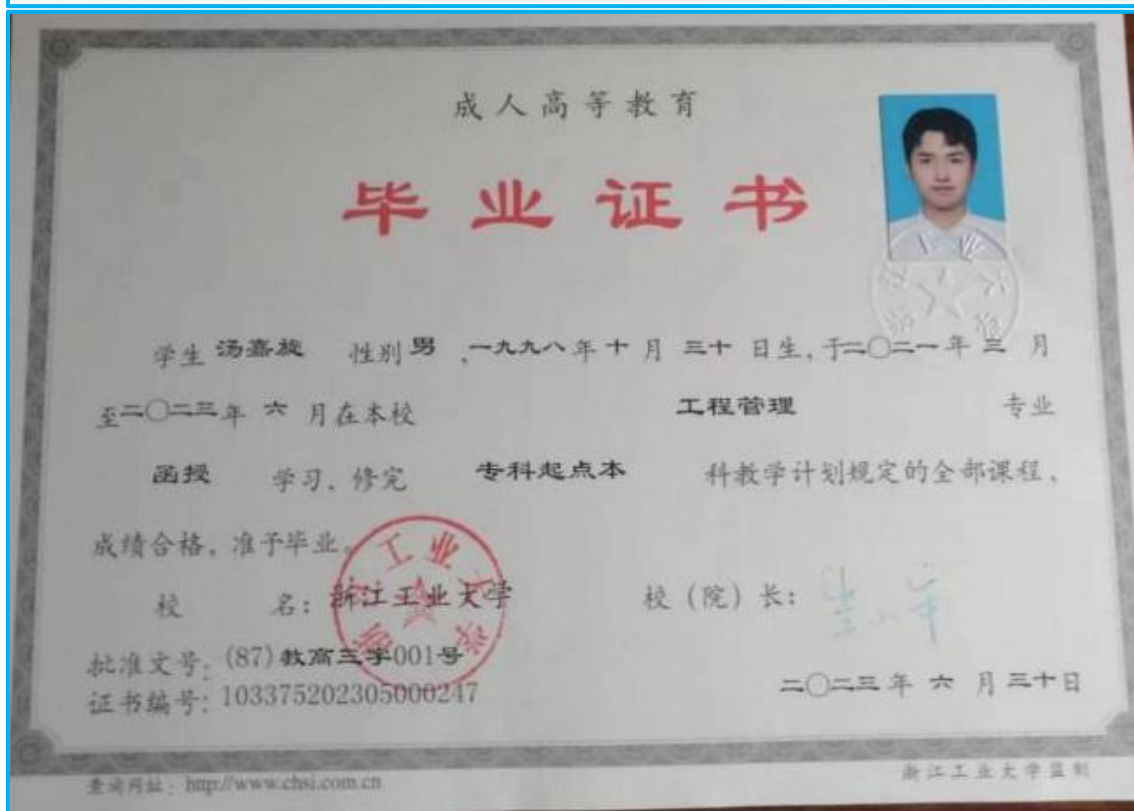 成人高等教育
毕业证书
学生 汤嘉旋 性别 男 ,一九九八年 十 月 三十 日生, 于二〇二一年 三 月
至二〇二三年 六 月在本校 工程管理 专业
函授 学习, 修完 专科起点本 科教学计划规定的全部课程,
成绩合格, 准予毕业。
校 名: 浙江工业大学 校(院)长:
批准文号: (87)教高三字001号
证书编号: 103375202305000247
二〇二三年 六 月三十日
查询网址: http://www.chsi.com.cn
浙江工业大学监制